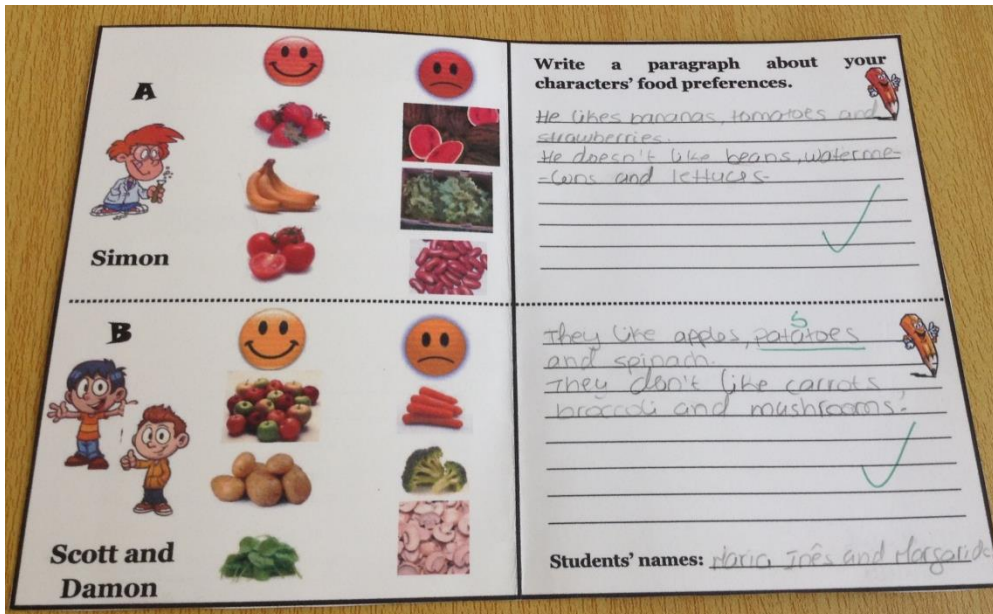 A
Simon
Write a paragraph about your
characters' food preferences.
He likes bananas, tomatoes and
strawberries.
He doesn't like beans, waterme-
-lons and lettuces.
B
Scott and
Damon
They like apples, patatoes
and spinach.
They don't like carrots,
broccoli and mushrooms.
Students' names: Maria Inês and Margarida